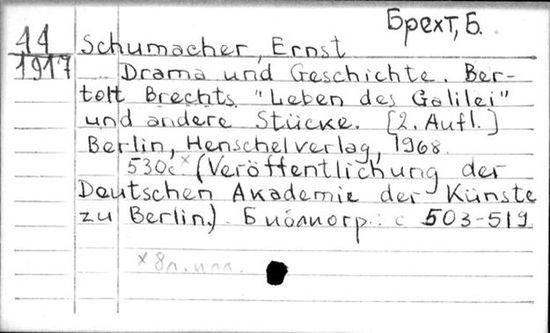 Брехт, Б.
11
1917
Schumacher, Ernst
Drama und Geschichte. Ber-
tolt Brechts "Leben des Galilei"
und andere Stücke. [2. Aufl.]
Berlin, Henschelverlag, 1968.
530c × (Veröffentlichung der
Deutschen Akademie der Künste
zu Berlin.) Библиогр.: с 503-519
× 8л. илл.